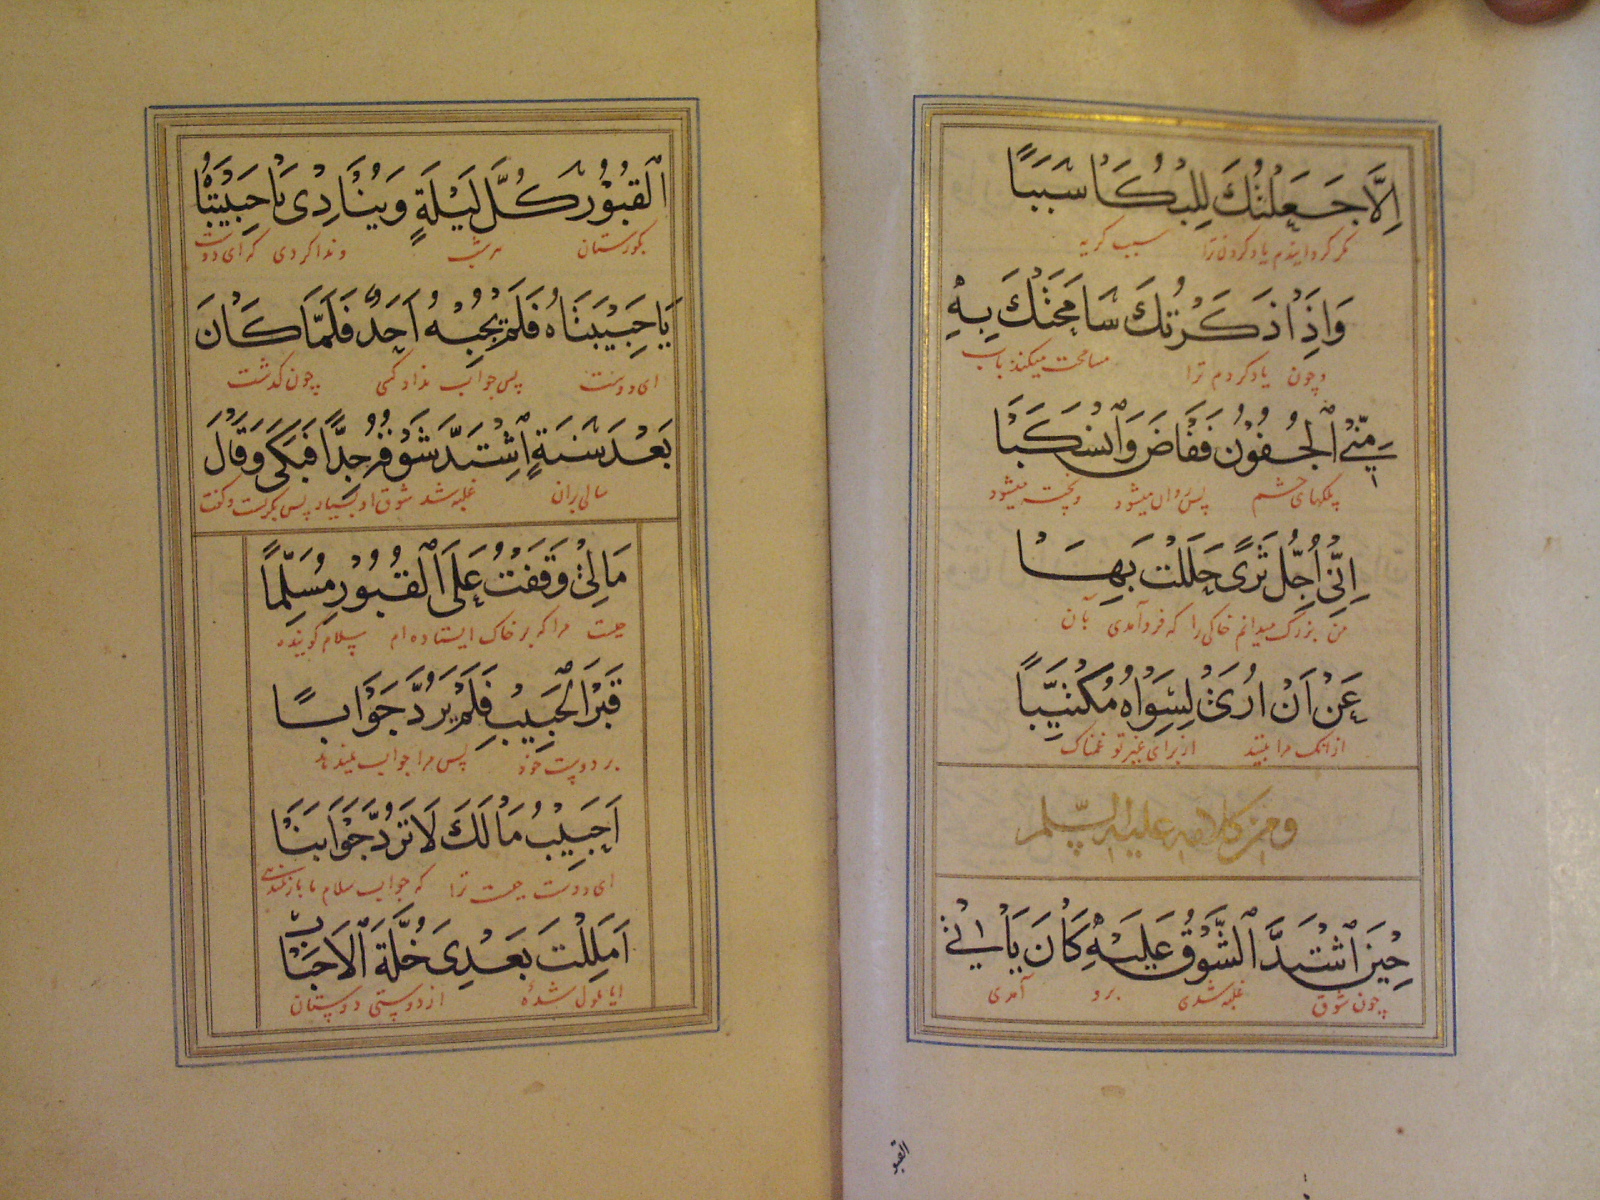 اِلَّا جَعَلْتُكَ لِلْبُكَا سَبَبًا
مگر گردانیدم یاد کردن ترا سبب گریه
وَاِذَا ذَكَرْتُكَ سَامَحَتْكَ بِهِ
و چون یاد کردم ترا مسامحت میکند باب
مِنِّي الْجُفُوْنُ فَفَاضَ وَانْسَكَبَا
پلکهای چشم پس روان میشود و ریخته میشود
اِنِّي اُجِلُّ ثَرًى حَلَلْتَ بِهَا
من بزرگ میدانم خاکی را که فرو آمدی بان
عَنْ اَنْ اُرَى لِسِوَاهُ مُكْتَئِبًا
از آنک مرا بینند از برای غیر تو غمناک
ومن كلامه عليه السلم
حِيْنَ اشْتَدَّ الشَّوْقُ عَلَيْهِ كَانَ يَاْتِيْ
چون شوق غلبه شدی برو آمدی
القبو
الْقُبُوْرَ كُلَّ لَيْلَةٍ وَيُنَادِيْ يَا حَبِيْبَتَاهُ
بگورستان هر شب و ندا کردی که ای دوست
يَا حَبِيْبَتَاهُ فَلَمْ يُجِبْهُ اَحَدٌ فَلَمَّا كَانَ
ای دوست پس جواب نداد کسی چون گذشت
بَعْدَ سَنَةٍ اشْتَدَّ شَوْقُهُ جِدًّا فَبَكَى وَقَالَ
سالی بران غلبه شد شوق او بسیار پس بگریست و گفت
مَالِيْ وَقَفْتُ عَلَى الْقُبُوْرِ مُسَلِّمًا
چیست مرا که بر خاک ایستاده ام سلام گوینده
قَبْرَ الْحَبِيْبِ فَلَمْ يَرُدَّ جَوَابًا
بر دوست خود پس مرا جواب
اَحَبِيْبُ مَالَكَ لَا تَرُدُّ جَوَابَنَا
ای دوست چیست ترا که جواب سلام ما باز
اَمَلِلْتَ بَعْدِيْ خُلَّةَ الْاَحْبَابِ
ایا ملول شدهٔ از دوستی دوستان